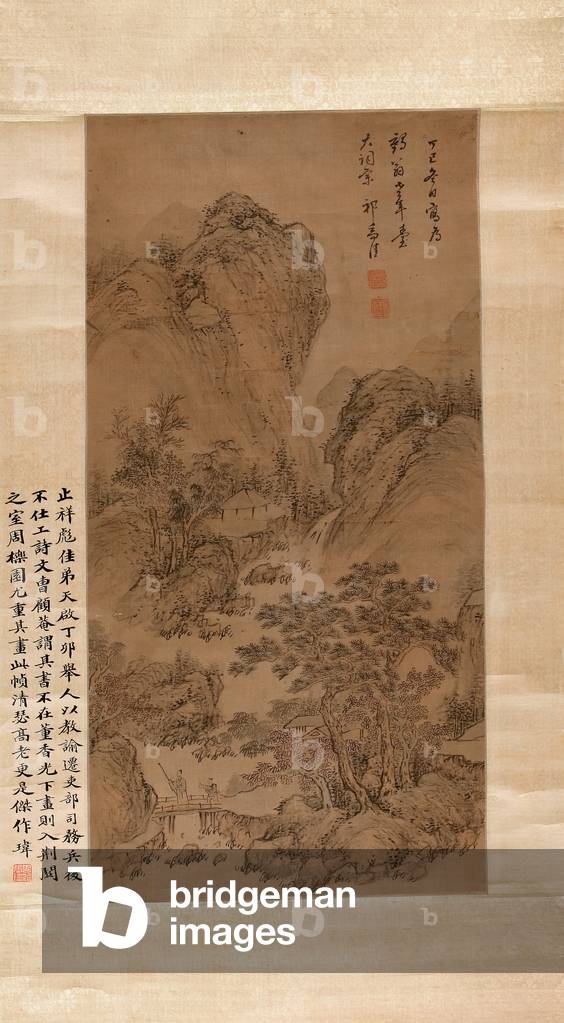 丁巳冬日寫為
鶴翁老年臺
大詞宗 祁豸佳
止祥彪佳弟天啟丁卯舉人以教諭遷吏部司務兵後
不仕工詩文曹顧菴謂其書不在董香光下畫則入荆關
之室周櫟園尤重其畫此幀清瑟高老更是傑作瑋
b bridgeman
images